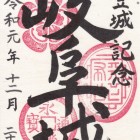 登城記念
岐阜城
令和元年十二月二十